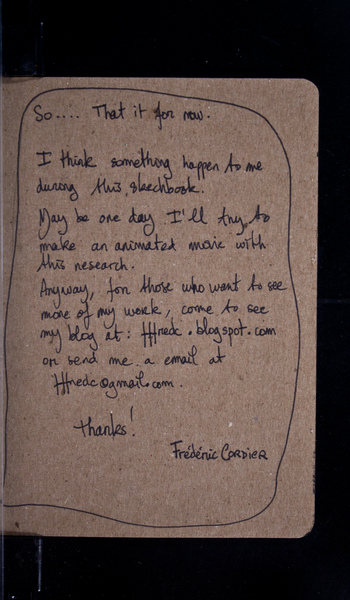 So.... That it for now.
I think something happen to me
during this sketchbook.
May be one day I'll try to
make an animated movie with
this research.
Anyway, for those who want to see
more of my work, come to see
my blog at: fffredc.blogspot.com
or send me a email at
fffredc@gmail.com.
thanks!
Frédéric CORDIER